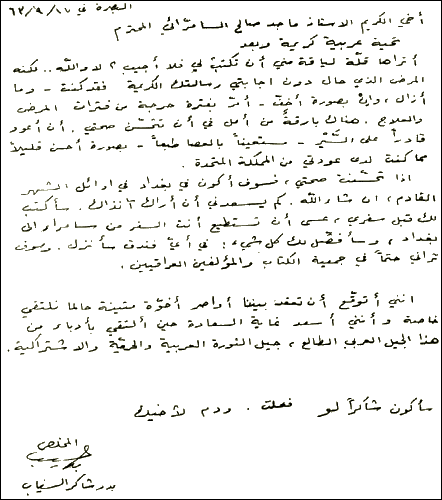 البصرة في ٦٣/٩/١٧
أخي الكريم الاستاذ ماجد صالح السامرائي المحترم
تحية عربية كريمة وبعد
أتراها قلّة لياقة مني أن تكتب لي فلا أجيب ؟ لا والله .. لكنه
المرض الذي حال دون اجابتي رسالتك الكريمة . فقد كنت – وما
أزال ، وان بصورة أخف – أمرّ بفترة حرجة من فترات المرض
والعلاج . هناك بارقة من أمل في أن تتحسّن صحتي . أن أعود
قادراً على السَّيْر – مستعيناً بالعصا طبعاً – بصورة أحسن قليلاً
مما كنت لدى عودتي من المملكة المتحدة .
اذا تحسّنت صحتي ، فسوف أكون في بغداد في اوائل الشهر
القادم ، ان شاء الله . كم يسعدني أن أراك آنذاك . سأكتب
لك قبل سفري ، عسى أن تستطيع أنت السفر من سامراء الى
بغداد ، وسأفصّل لك كل شيء : في أيّ فندق سأنزل . وسوف
تراني حتماً في جمعية الكتاب والمؤلفين العراقيين .
انني أتوقّع أن تعقد بيننا أواصر أخوّة متينة حالما نلتقي
خاصة وأنني أسعد غاية السعادة حين ألتقي بأدباء من
هذا الجيل العربي الطالع ، جيل الثورة العربية والحرية والاشتراكية .
سأكون شاكراً لو فعلت . ودم لأخيك
المخلص
بدر شاكر السياب